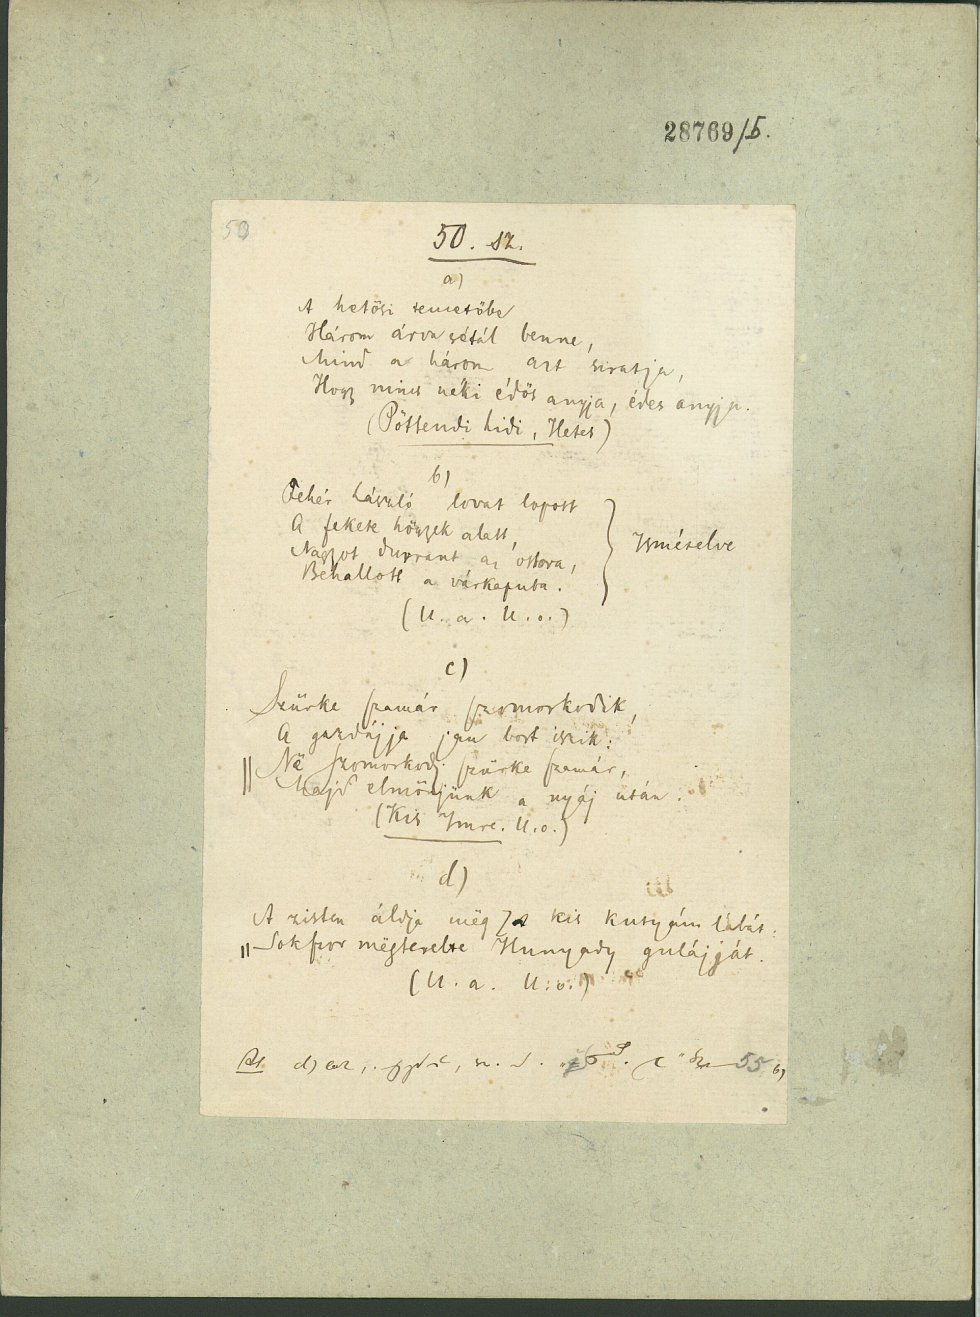 28769/5.
50
50. sz.
a)
A hetösi temetöbe
Három árva sétál benne,
Mind a három azt siratja,
Hogy nincs néki édös anyja, édes anyja.
(Pöttendi hidi, Hetes)
b)
Fehér lovat lopott
A fekete högyek alatt,
Nagyot durrant az ostora,
Behallott a várkapuba.
Ismételve
(U. a. U. o.)
c)
Szürke szamár szomorkodik,
A gazdájja jau bort iszik:
Në szomorkodj szürke szamár,
Majd elmönjünk a nyáj után.
(Kis Imre. U. o.)
d)
A zisten áldja mëg a kis kutyám lábát.
Sokszor mëgterelte Hunyady gulájját.
(U. a. U. o.)
Az d) 55 b)